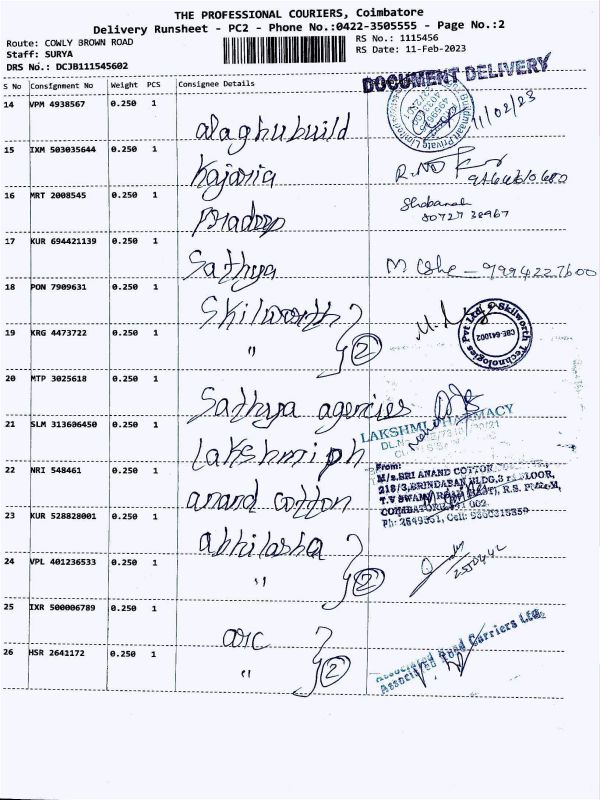 THE PROFESSIONAL COURIERS, Coimbatore
Delivery Runsheet - PC2 - Phone No.:0422-3505555 - Page No.:2
Route: COWLY BROWN ROAD
RS No.: 1115456
Staff: SURYA
RS Date: 11-Feb-2023
DRS No.: DCJB111545602
S No Consignment No Weight PCS Consignee Details
DOCUMENT DELIVERY
14 VPM 4938567 0.250 1
alaghubuild
11/02/23
15 IXM 503035644 0.250 1
Kajaria
16 MRT 2008545 0.250 1
Pradeep
Shobanah
17 KUR 694421139 0.250 1
Sathya
9994227600
18 PON 7909631 0.250 1
Skilworth
Skilworth Technologies Pvt Ltd
CBE-641002
19 KRG 4473722 0.250 1
" 2
20 MTP 3025618 0.250 1
Sathya agencies
21 SLM 313606450 0.250 1
LAKSHMI PHARMACY
Lakshmi ph
22 NRI 548461 0.250 1
From:
M/s.SRI ANAND COTTON
218/3,BRINDABAN BLDG,3 rd FLOOR,
anand cotton
23 KUR 528828001 0.250 1
abhilasha
24 VPL 401236533 0.250 1
" 2
25 IXR 500006789 0.250 1
arc
Associated Road Carriers Ltd.
26 HSR 2641172 0.250 1
" 2